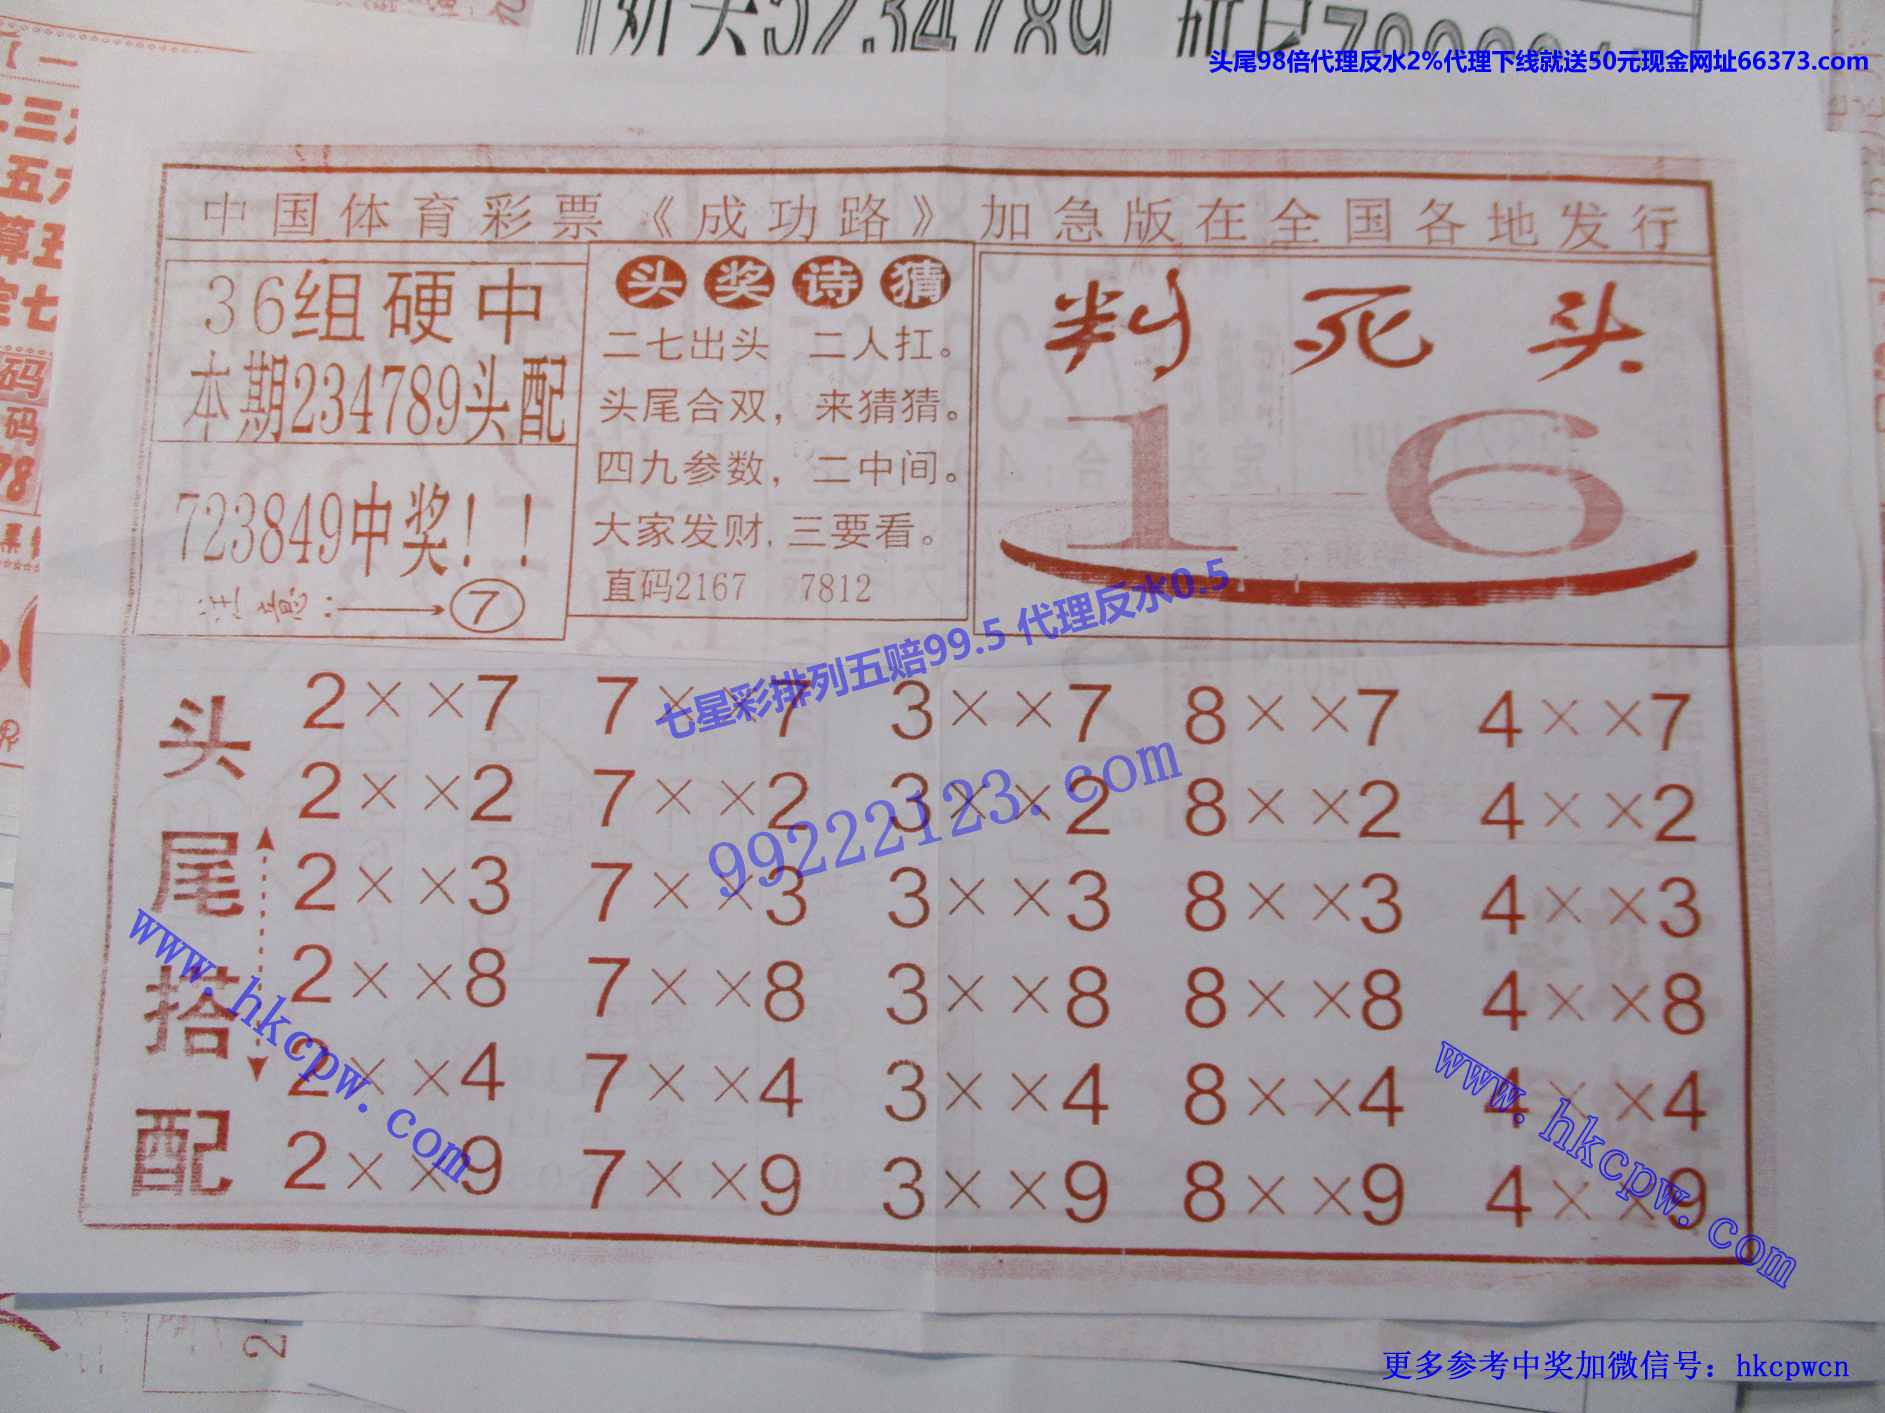 头尾98倍代理反水2%代理下线就送50元现金网址66373.com
中国体育彩票《成功路》加急版在全国各地发行
36组硬中
本期234789头配
723849中奖！！
注意：⑦
头奖诗猜
二七出头 二人扛。
头尾合双，来猜猜。
四九参数，二中间。
大家发财，三要看。
直码2167 7812
判死头
1 6
七星彩排列五赔99.5 代理反水0.5
99222123.com
头尾搭配
2××7 7××7 3××7 8××7 4××7
2××2 7××2 3××2 8××2 4××2
2××3 7××3 3××3 8××3 4××3
2××8 7××8 3××8 8××8 4××8
2××4 7××4 3××4 8××4 4××4
2××9 7××9 3××9 8××9 4××9
www.hkcpw.com
www.hkcpw.com
更多参考中奖加微信号：hkcpwcn